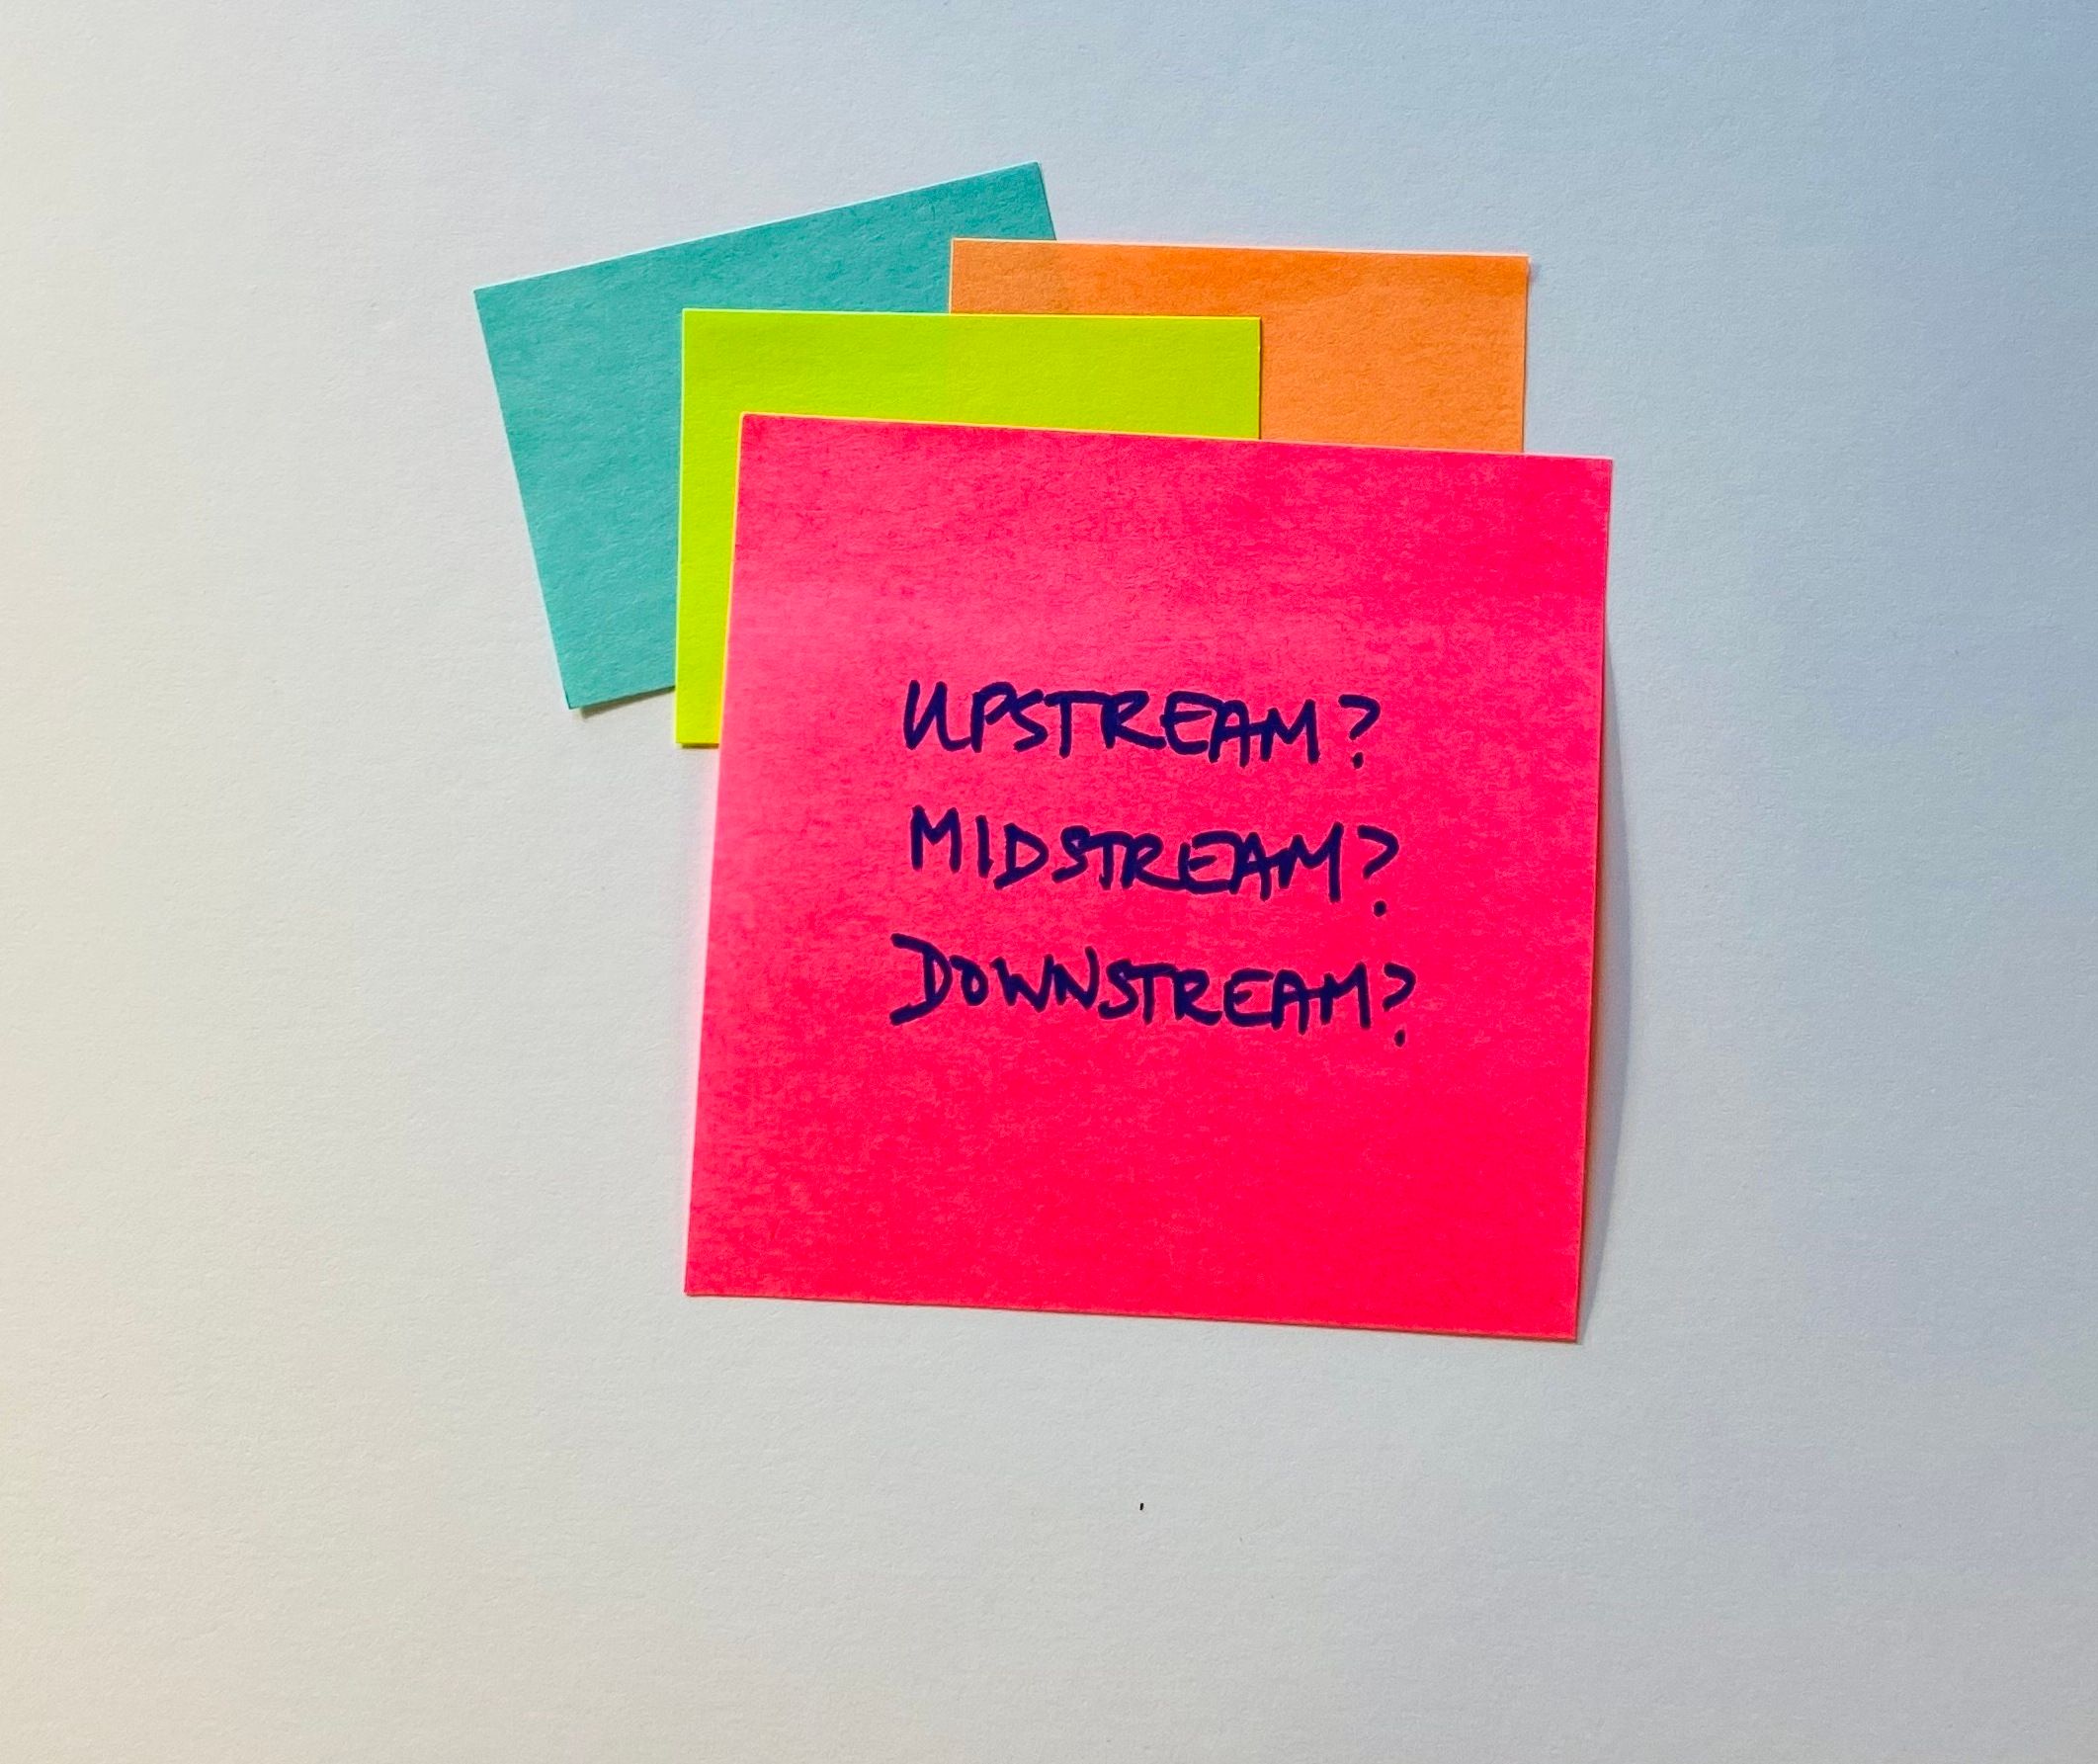 UPSTREAM?
MIDSTREAM?
DOWNSTREAM?